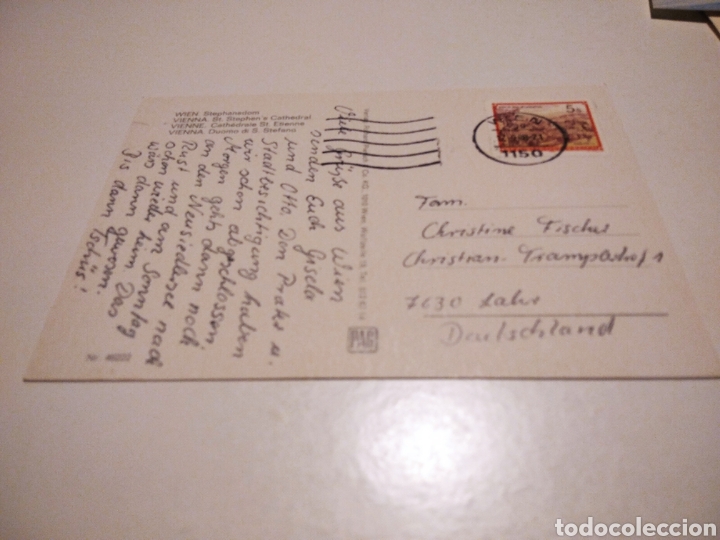 WIEN. Stephansdom
VIENNA. St. Stephen's Cathedral
VIENNE. Cathédrale St. Etienne
VIENNA. Duomo di S. Stefano
Viele Grüße aus Wien
senden Euch Gisela
und Otto. Den Prater u.
Stadtbesichtigung haben
wir schon abgeschlossen
Morgen geht dann noch
an den Neusiedlersee nach
Rust und am Sonntag
schon wieder heim. Das
wars dann gewesen.
Bis dann Tschüs!
Nr. 46222
PAG
5 S
1150
Fam.
Christine Fischer
Christian-Trampler-Hof 1
7630 Lahr
Deutschland
todocoleccion